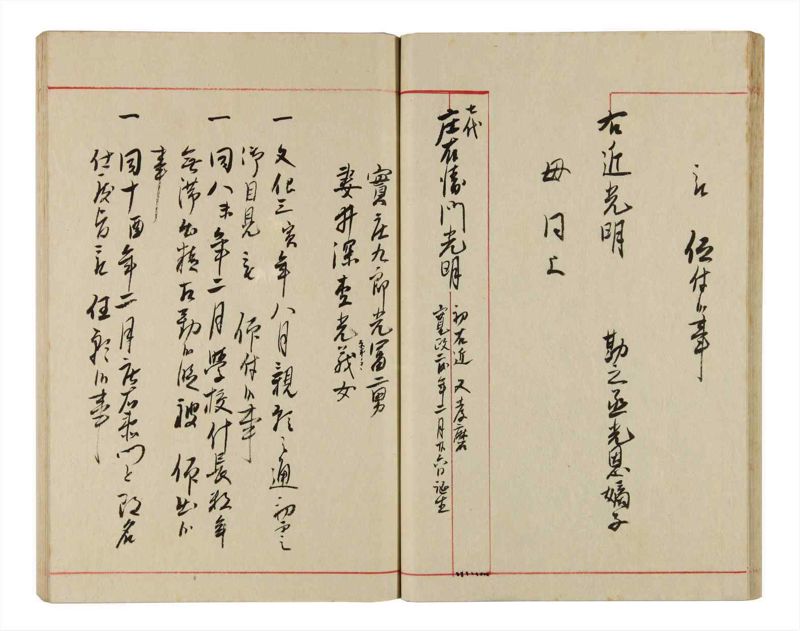 被 仰付候事
右近光明 勘之丞光恩嫡子
母同上
七代
庄右衛門光明
初右近 又孝麿
寛政二戌年二月廿六日誕生
實庄九郎光冨二男
妻井深 光義女
一 文化三寅年八月親願之通初而之
御目見被 仰付候事
一 同八未年二月學校付長数年
無滞出精相勤候段被 仰出候
事
一 同十酉年二月庄右衛門と改名
仕度旨被任願候事